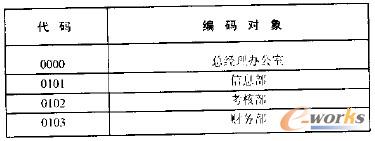 代 码 编 码 对 象
0000 总经理办公室
0101 信息部
0102 考核部
0103 财务部
e-works